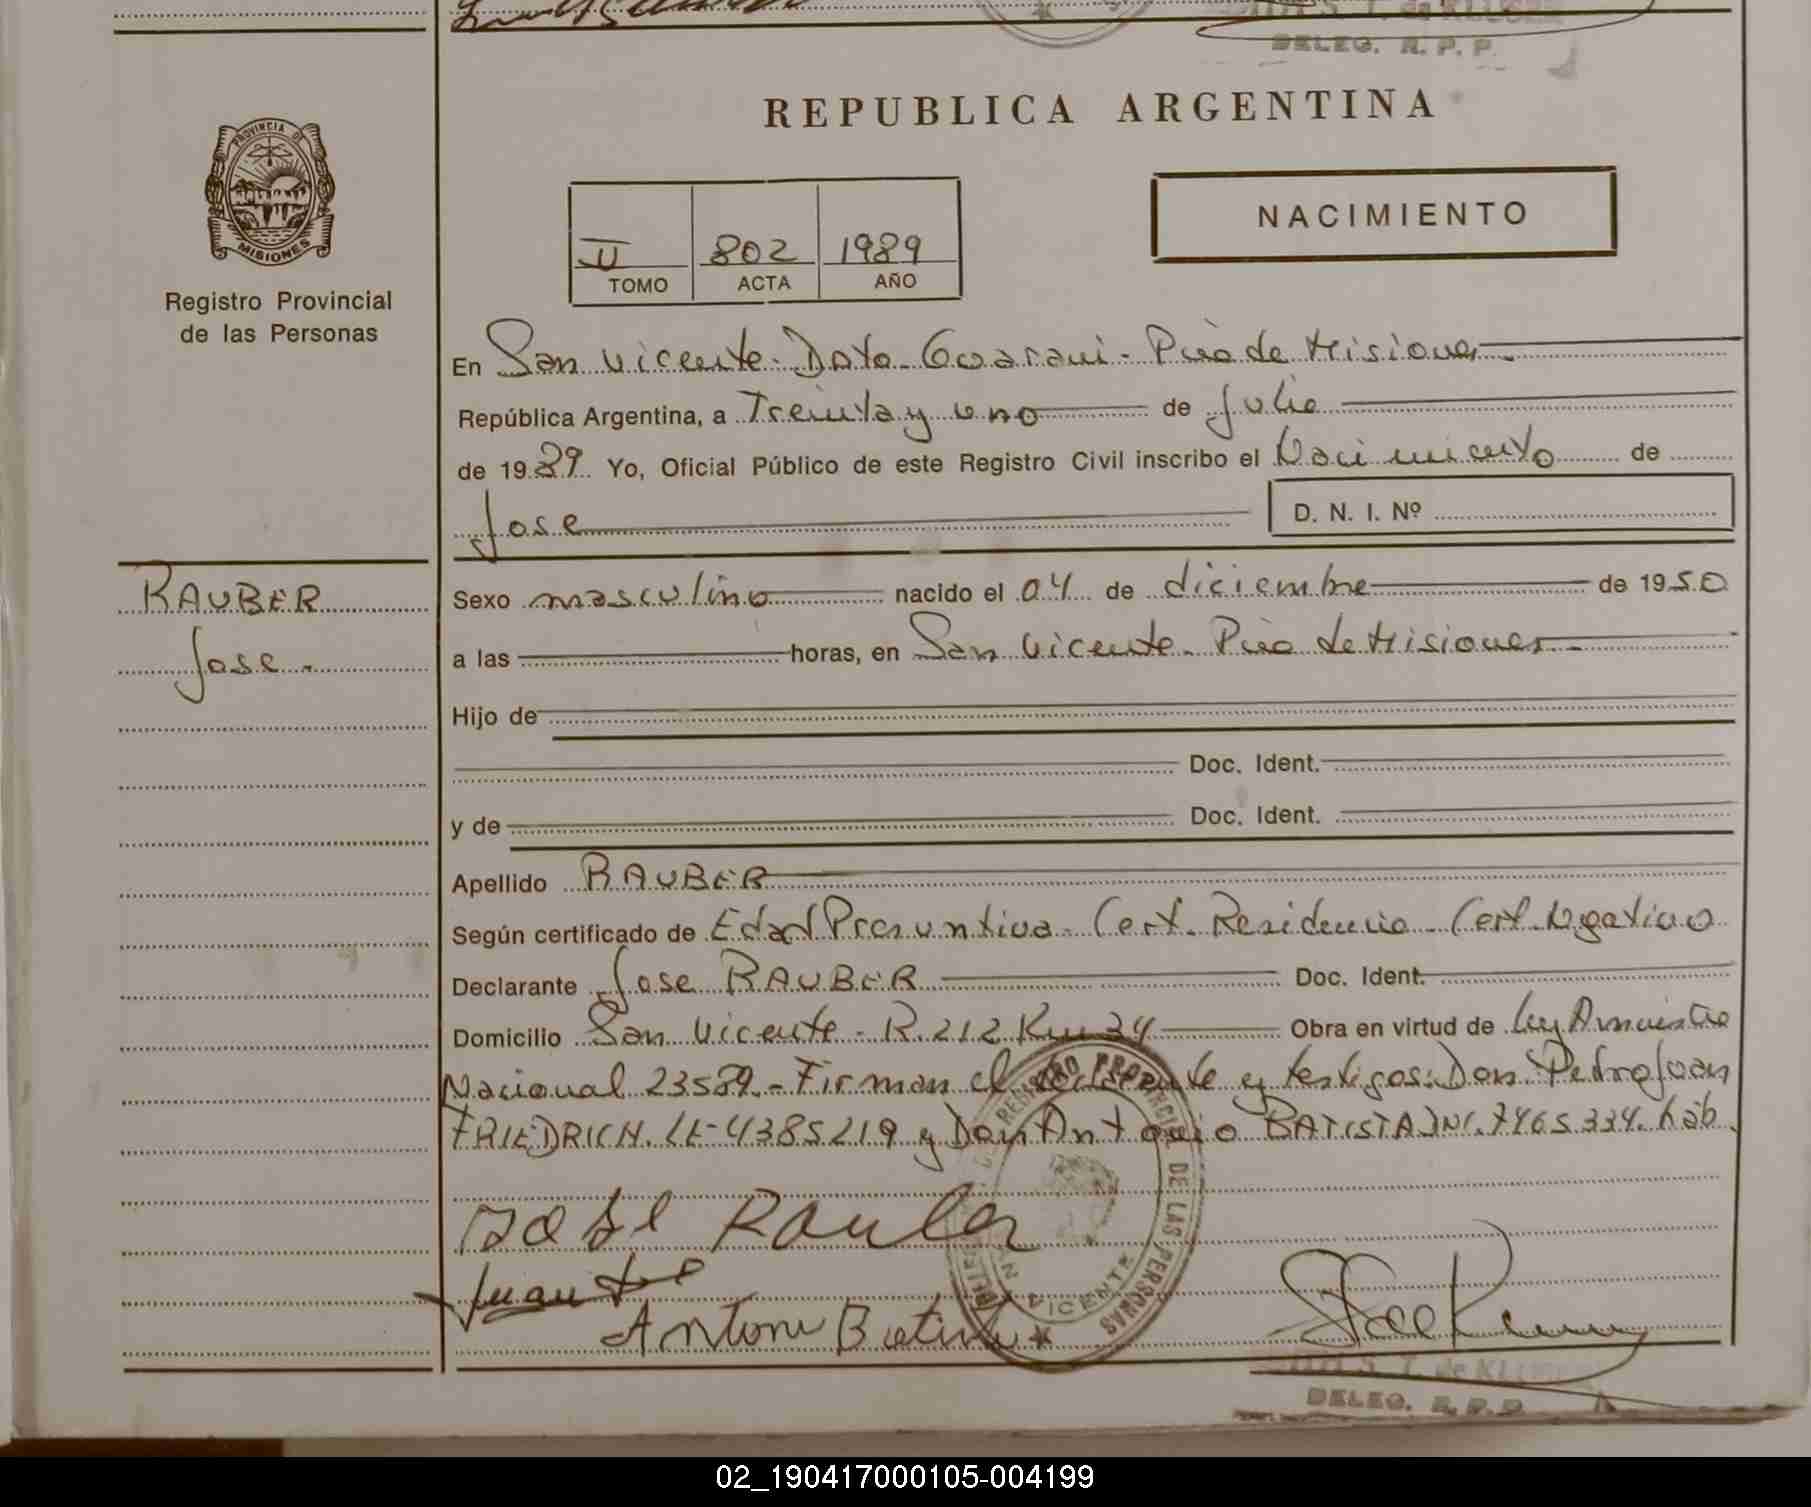 DELEG. R. P. P.
REPUBLICA ARGENTINA
PROVINCIA DE
MISIONES
Registro Provincial
de las Personas
NACIMIENTO
II 802 1989
TOMO ACTA AÑO
En San Vicente - Dpto. Guarani - Pcia de Misiones
República Argentina, a Treinta y uno de Julio
de 1989 Yo, Oficial Público de este Registro Civil inscribo el Nacimiento de
Jose D. N. I. Nº
RAUBER
Jose.
Sexo masculino nacido el 04 de diciembre de 1950
a las horas, en San Vicente - Pcia de Misiones
Hijo de
Doc. Ident.
y de Doc. Ident.
Apellido RAUBER
Según certificado de Edad Presuntiva - Cert. Residencia - Cert. Negativo
Declarante Jose RAUBER Doc. Ident.
Domicilio San Vicente - R. 212 Km 34 Obra en virtud de Ley Amnistia
Nacional 23589.- Firman el y testigos: Don Pedro Juan
FRIEDRICH. LE-4385219 y Don Antonio BATISTA DNI. 7465334. hab.
REGISTRO PROVINCIAL DE LAS PERSONAS
VICENTE
Jose Rauber
Juan
Antonio Batista
DELEG. R.P.P.
02_190417000105-004199